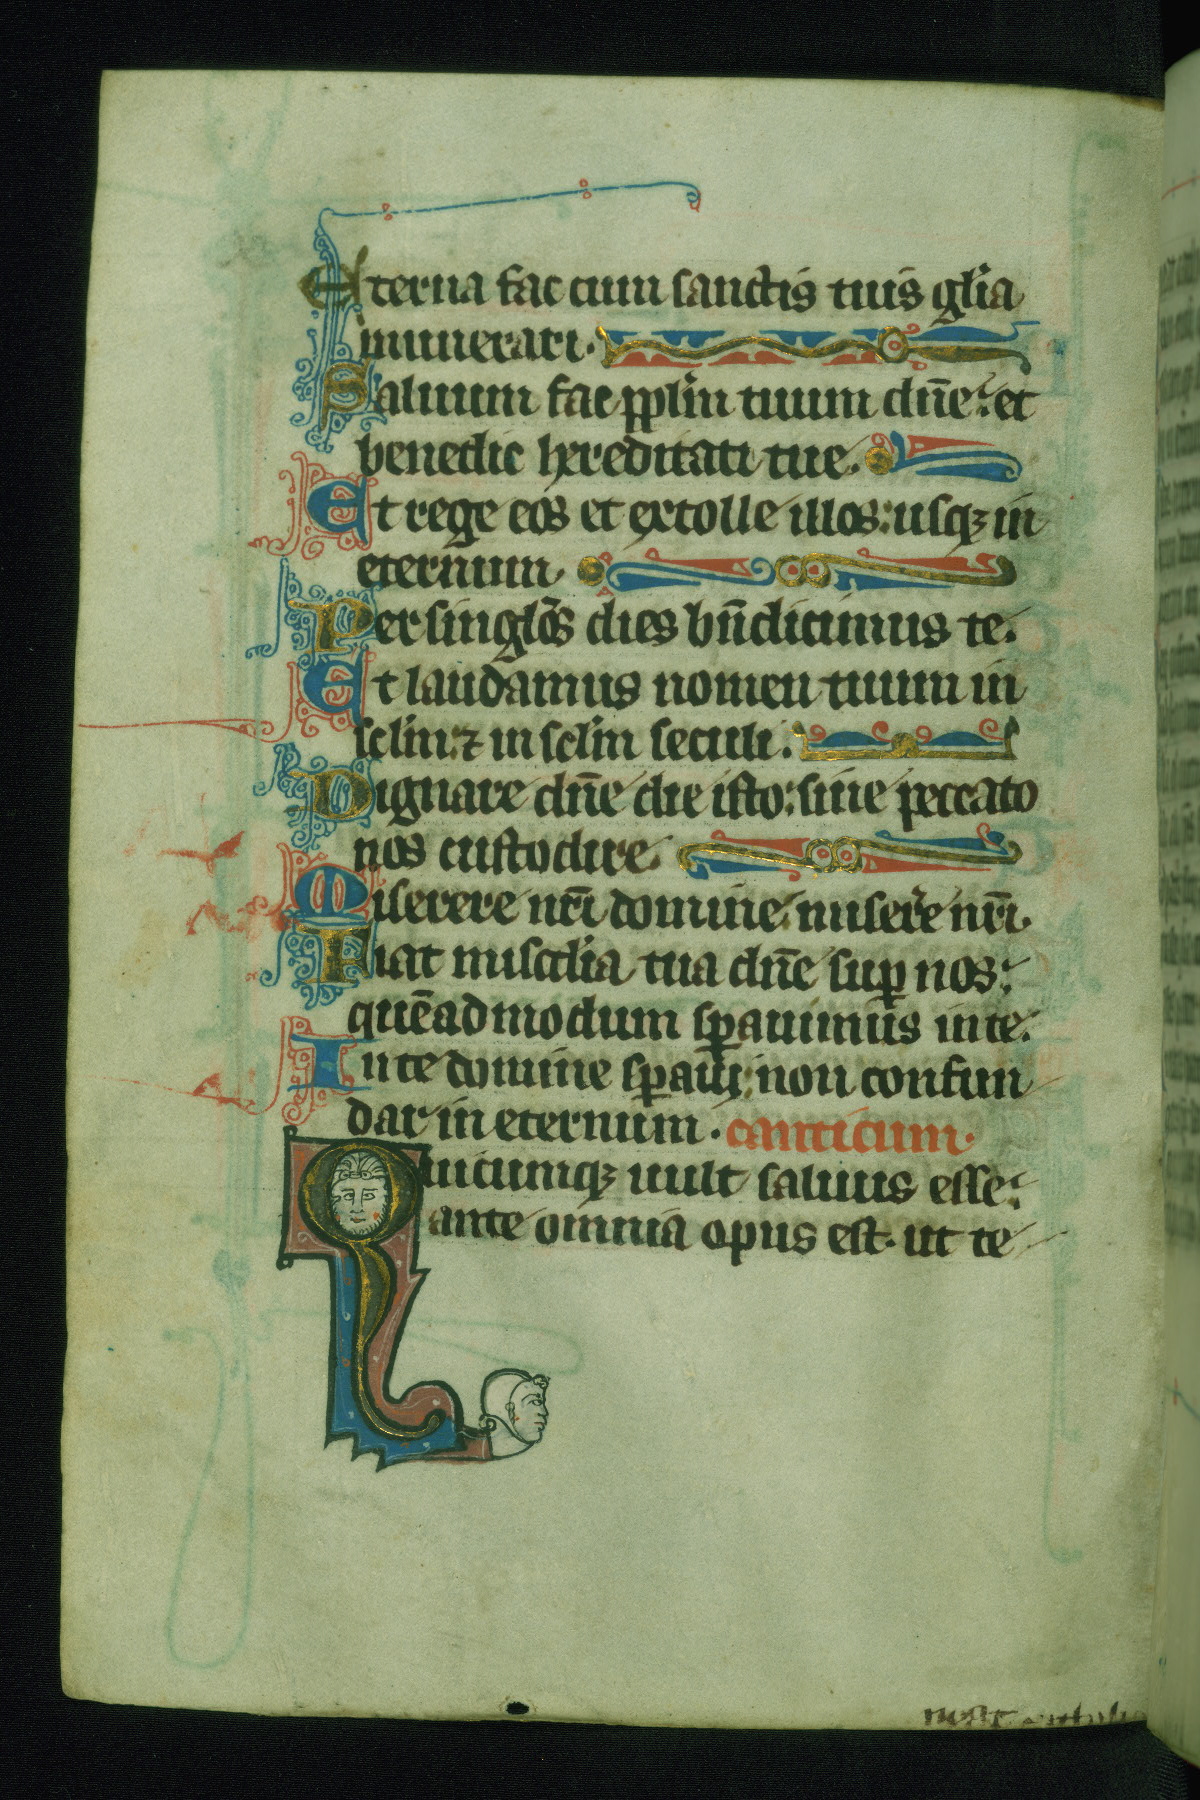 Eterna fac cum sanctis tuis gl̃ia
munerari.
Saluum fac pplm̃ tuum dñe: et
benedic hereditati tue.
Et rege eos et extolle illos: usqꝫ in
eternum.
Per singlõs dies bñdicimus te.
Et laudamus nomen tuum in
sclm̃: ⁊ in sclm̃ seculi.
Dignare dñe die isto: sine peccato
nos custodire.
Miserere nr̃i domine: miserẽe nr̃i.
Fiat miscd̃ia tua dñe suꝑ nos:
quẽadmodum sꝑauimus in te.
In te domine sꝑaui: non confun
dar in eternum. canticum.
Quicumqꝫ uult saluus esse:
ante omnia opus est. ut te